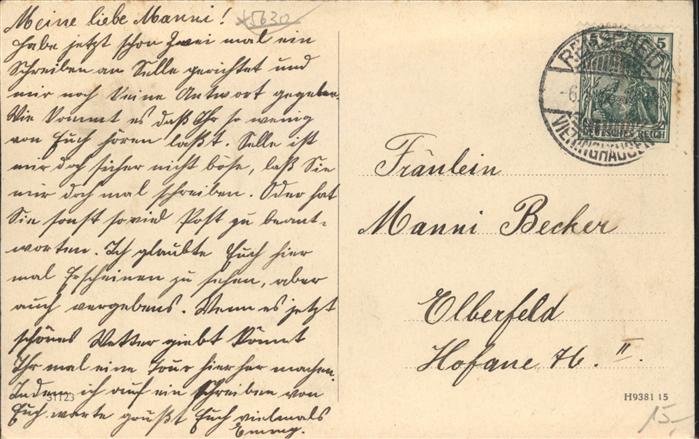 Meine liebe Manni!
x5630
habe jetzt schon zwei mal ein
Schreiben an Selle gerichtet und
mir noch keine Antwort gegeben.
Wie kommt es daß Ihr so wenig
von Euch hören laßt. Selle ist
mir doch sicher nicht böse, laß Sie
mir doch mal schreiben. Oder hat
Sie sonst so viel Post zu beant-
worten. Ich glaubte Euch hier
mal Erscheinen zu sehen, aber
auch vergebens. Wenn es jetzt
schönes Wetter giebt könnt
Ihr mal eine Tour hierher machen.
Indem ich auf ein Schreiben von
Euch warte grüßt Euch vielmals
31123
REMSCHEID
-6.
VIERINGHAUSEN
5
DEUTSCHES REICH
Fräulein
Manni Becker
Elberfeld
Hofaue 76. II.
H9381 15
15,-